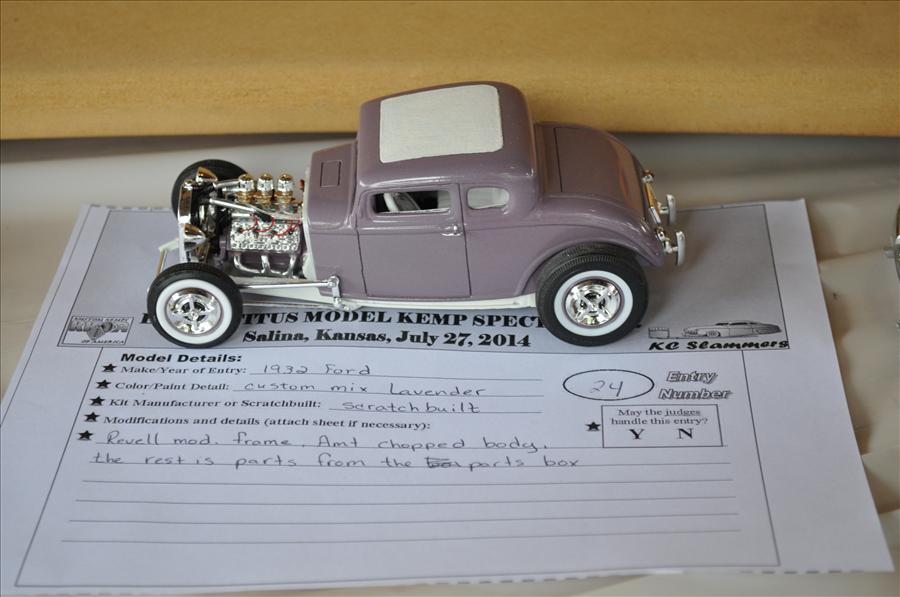 ITUS MODEL KEMP SPECT
Salina, Kansas, July 27, 2014
OF AMERICA
KC Slammers
Model Details:
★ Make/Year of Entry: 1932 Ford
★ Color/Paint Detail: custom mix Lavender
★ Kit Manufacturer or Scratchbuilt: scratchbuilt
★ Modifications and details (attach sheet if necessary):
★ Revell mod. frame, Amt chopped body,
the rest is parts from the parts box
24 Entry Number
★ May the judges
handle this entry?
Y N